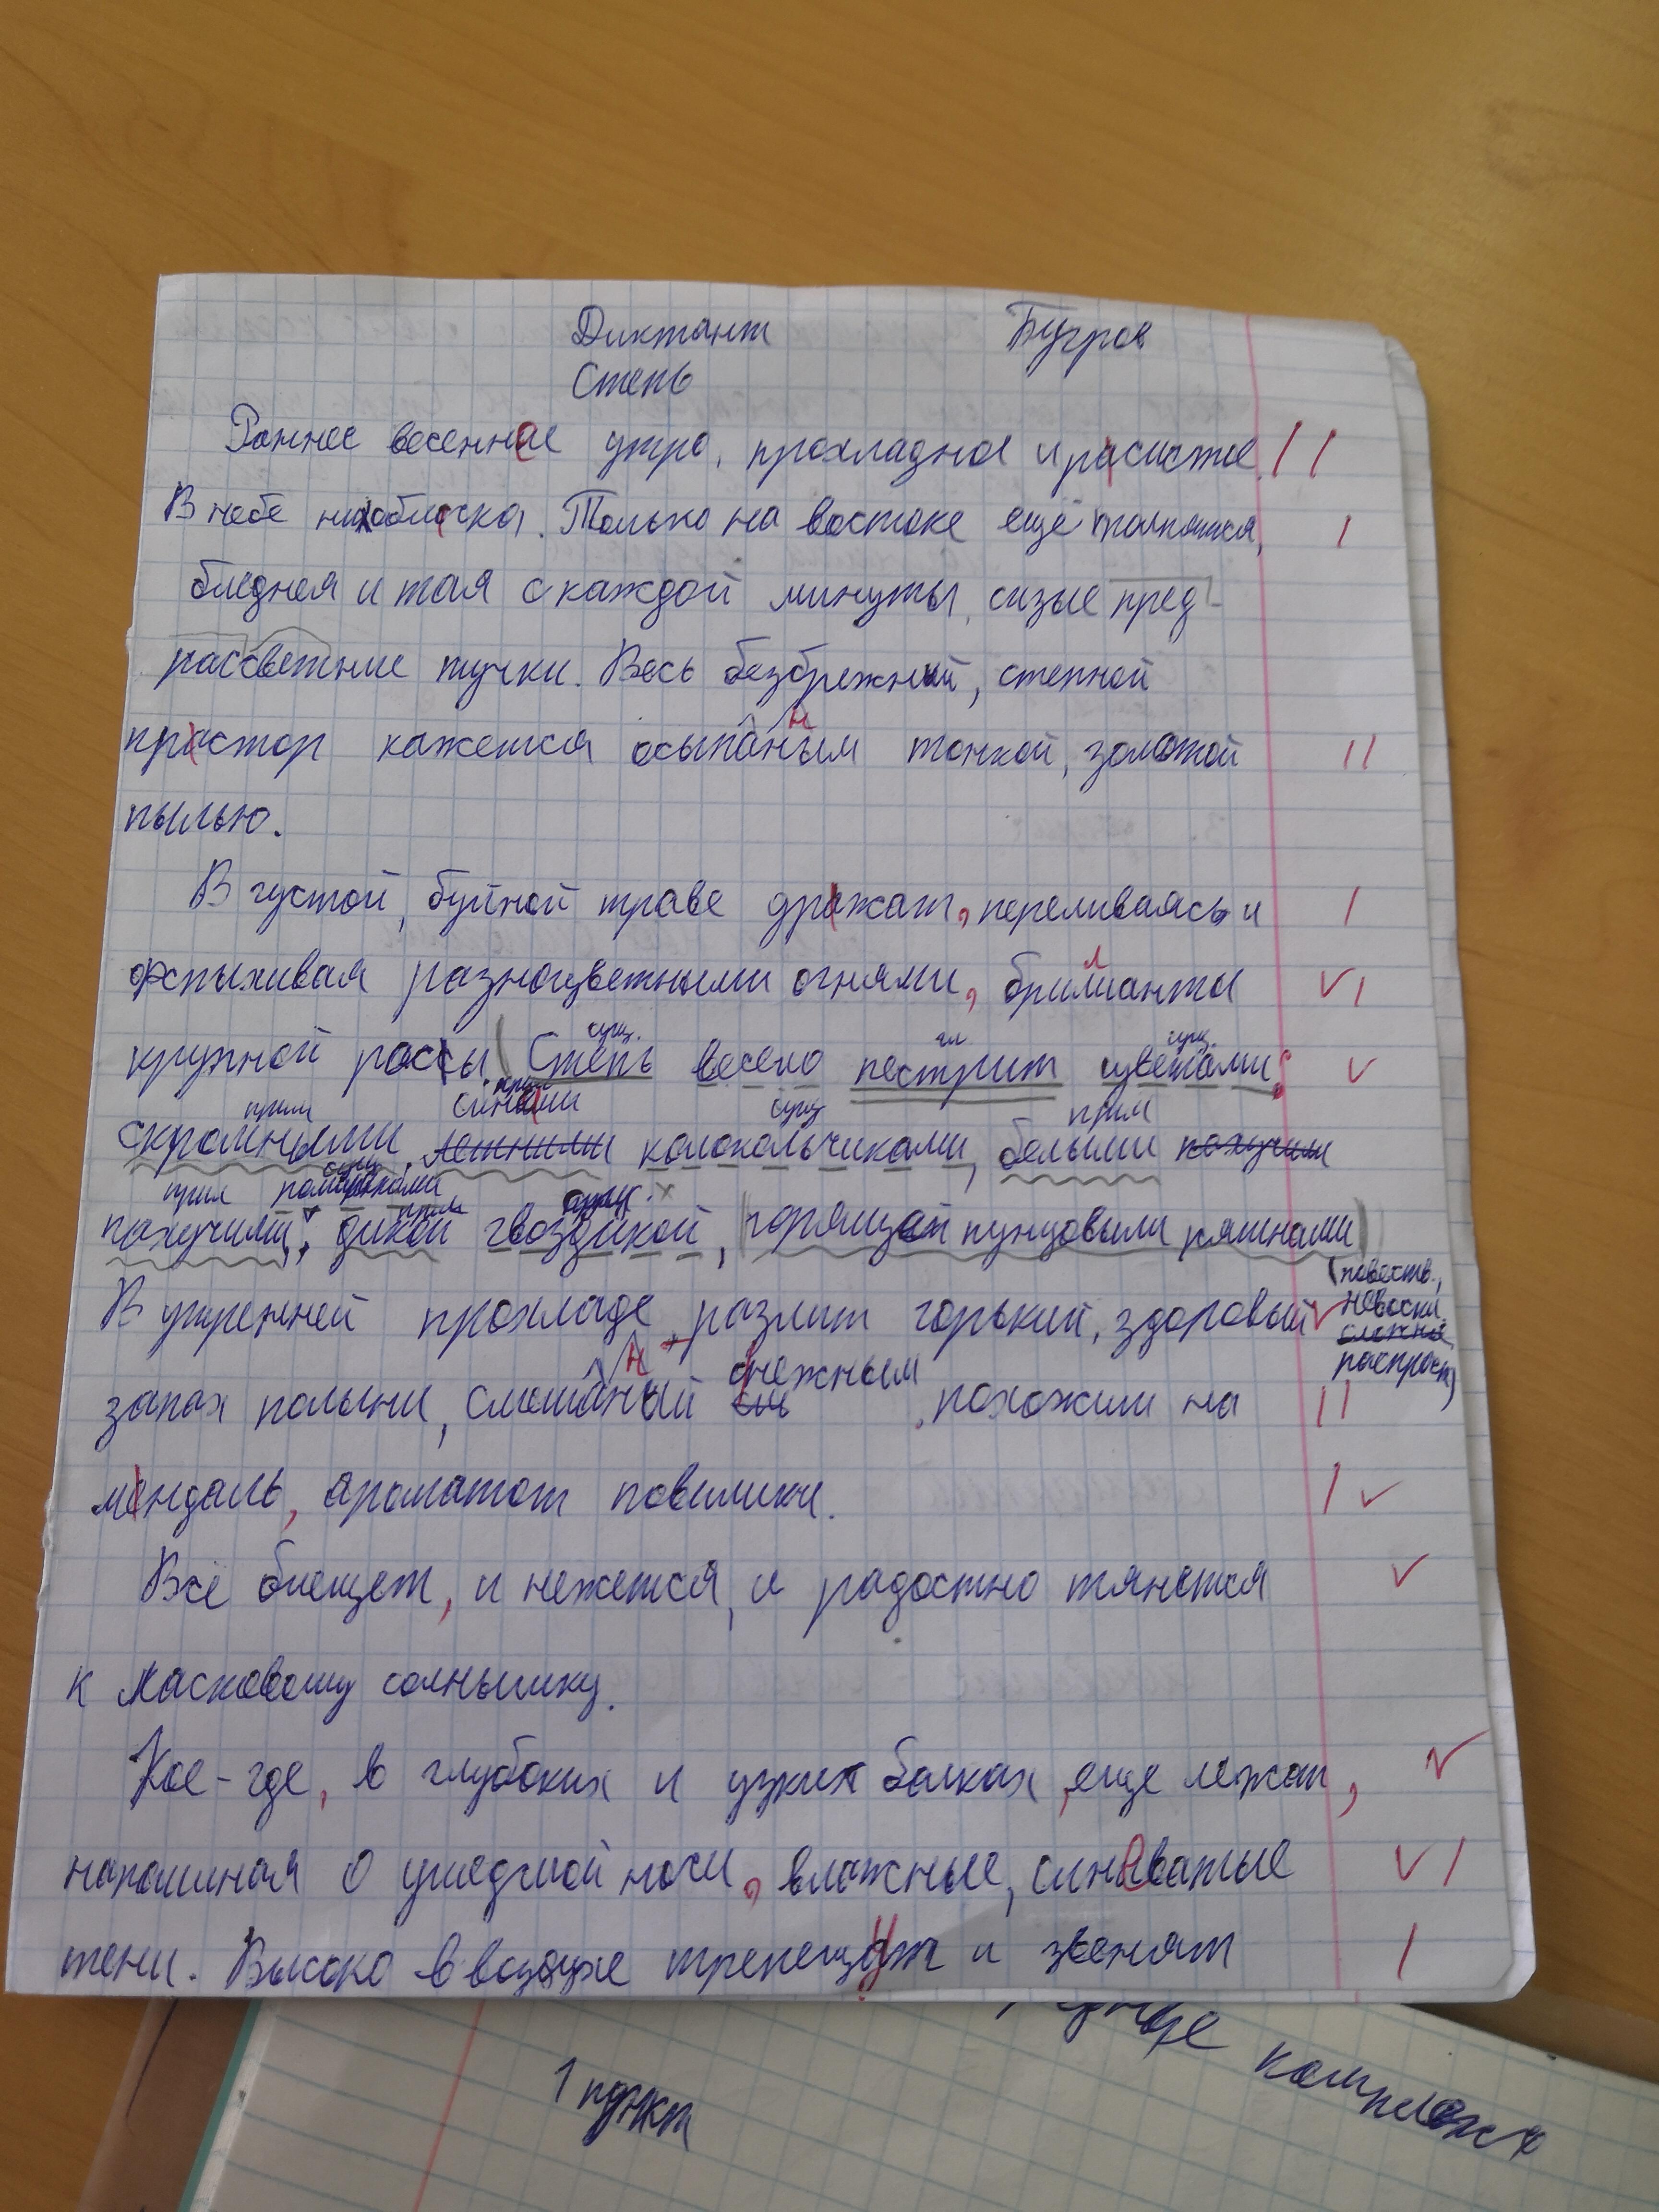 Диктант Бугров
Степь
Раннее весеннее утро, прохладное и расистое.
В небе ни облачка. Только на востоке ещё толпятся,
бледнея и тая с каждой минуты, сизые пред-
рассветные тучки. Весь безбрежный, степной
прастор кажется осыпаным тонкой, золотой
н
пылью.
В густой, буйной траве дражат, переливаясь и
вспыхивая разноцветными огнями, брилианты
л
сущ. гл сущ.
крупной россы. (Степь весело пестрит цветами:
прил прил синими сущ прил
скромными, колокольчиками, белыми пахучими
прил сущ прил сущ.
пахучими, дикой гвоздикой, горящей пунцовыми пятнами)
(повеств.,
невоскл
распрост)
В утренней прохладе разлит горький, здоровый
запах полыни, смешаный нежным, похожим на
н
мендаль, ароматом повилики.
Всё блещет, и нежется, и радостно тянется
к ласковому солнышку.
Кое-где, в глубоких и узких балках, еще лежат,
напоминая о ушедшей ночи, влажные, синеватые
тени. Высоко в воздухе трепещут и звенят
1 пункт